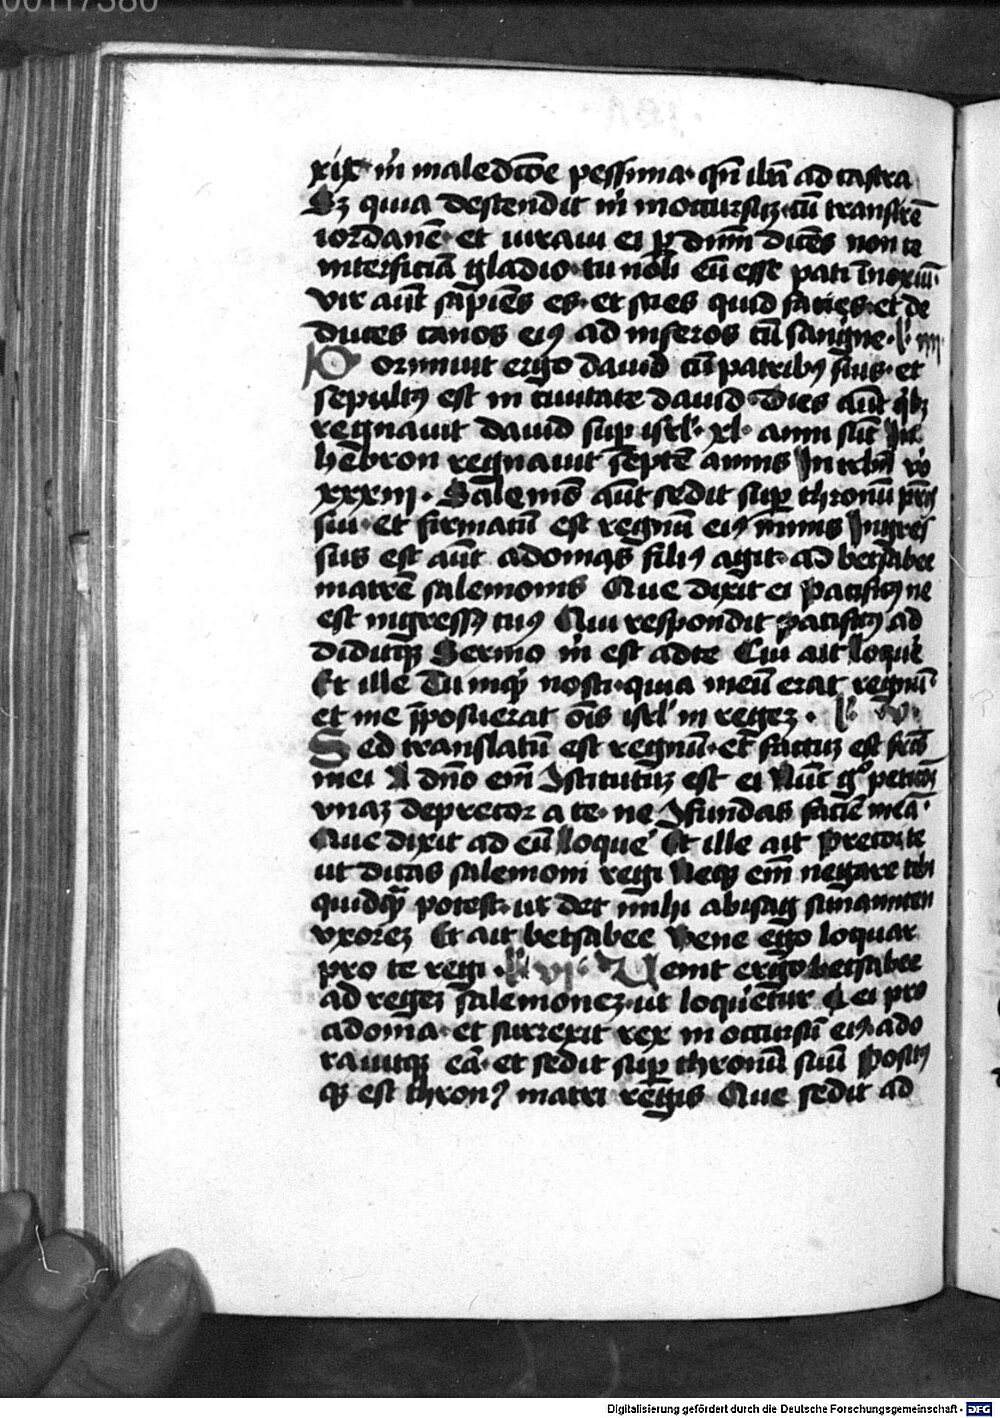 00117380
xix m̄ maledictōe pessima· qn̄ ibā ad castra
Sȝ quia descendit m̄ in occursuȝ· cū transirē
iordanē· et iuraui ei ꝑ dn̄m dicēs non te
interficiā gladio· tu noli eū esse pati īnoxiū·
vir aūt sapiēs es· et scies quid facies· et de
duces canos eiꝰ ad inferos cū sangīne· l' iiij
Dormiuit ergo dauid cū patribꝰ suis· et
sepultꝰ est in ciuitate dauid· Dies aūt qͥbȝ
regnauit dauid suꝑ isrl'· xl· anni sūt In
hebron regnauit septē annis In irlm̄
xxxiij· Salemōs aūt sedit suꝑ thronū pr̄is
sui· et firmatū est regnū eiꝰ nimis Ingres
sus est aūt adonias filiꝰ agit· ad betsabee
matrē salemonis Que dixit ei pacificꝰ ne
est ingressꝰ tuꝰ Qui respondit pacificꝰ ad
diditqꝫ Sermo m̄ est ad te Cui ait loque
Et ille Tu inqͥt nosti· quia meū erat regnū·
et me p̄posuerat oīs isrl' in regeȝ· l' v·
Sed translatū est regnū· et factuȝ est fr̄is
mei A dn̄o em̄ ɔstitutūȝ est ei Nūc gͦ peticōȝ
vnaȝ deprecor a te· ne ɔfundas faciē meā·
Que dixit ad eū loque Et ille ait Precor te
ut dicas salemoni regi Neqꝫ em̄ negare tibi
quidqͣ potest· ut det mihi abisag sunamiten
vxoreȝ Et ait betsabee Bene ego loquar
pro te regi· l' vj· Uenit ergo betsabee
ad regeȝ salemoneȝ· ut loqueretur ei pro
adonia· et surrexit rex in occursū eiꝰ· ado
rauitqꝫ eā· et sedit suꝑ thronū suū Positꝰ
qꝫ est thronꝰ matri regis Que sedit ad
Digitalisierung gefördert durch die Deutsche Forschungsgemeinschaft - DFG